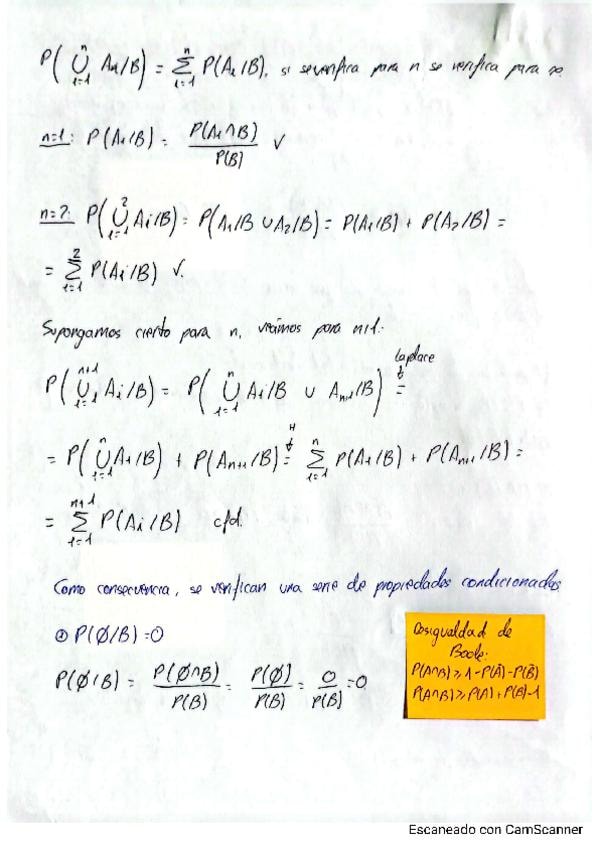 P(⋃ⁿᵢ₌₁ Aᵢ/B) = Σⁿᵢ₌₁ P(Aᵢ/B), si se verifica para n se verifica para ∞.
n=1: P(A₁/B) = P(A₁∩B)/P(B) ✓
n=2: P(⋃²ᵢ₌₁ Aᵢ/B) = P(A₁/B ∪ A₂/B) = P(A₁/B) + P(A₂/B) =
= Σ²ᵢ₌₁ P(Aᵢ/B) ✓.
Supongamos cierto para n, veámos para n+1:
P(⋃ⁿ⁺¹ᵢ₌₁ Aᵢ/B) = P(⋃ⁿᵢ₌₁ Aᵢ/B ∪ Aₙ₊₁/B) =
Laplace
↓
= P(⋃ⁿᵢ₌₁ Aᵢ/B) + P(Aₙ₊₁/B) = Σⁿᵢ₌₁ P(Aᵢ/B) + P(Aₙ₊₁/B) =
H
↓
= Σⁿ⁺¹ᵢ₌₁ P(Aᵢ/B) c/d.
Como consecuencia, se verifican una serie de propiedades condicionadas
① P(∅/B)=0
P(∅/B) = P(∅∩B)/P(B) = P(∅)/P(B) = 0/P(B) =0
Desigualdad de
Boole:
P(A∩B) ≥ 1-P(Ā)-P(B̄)
P(A∩B) ≥ P(A)+P(B)-1
Escaneado con CamScanner